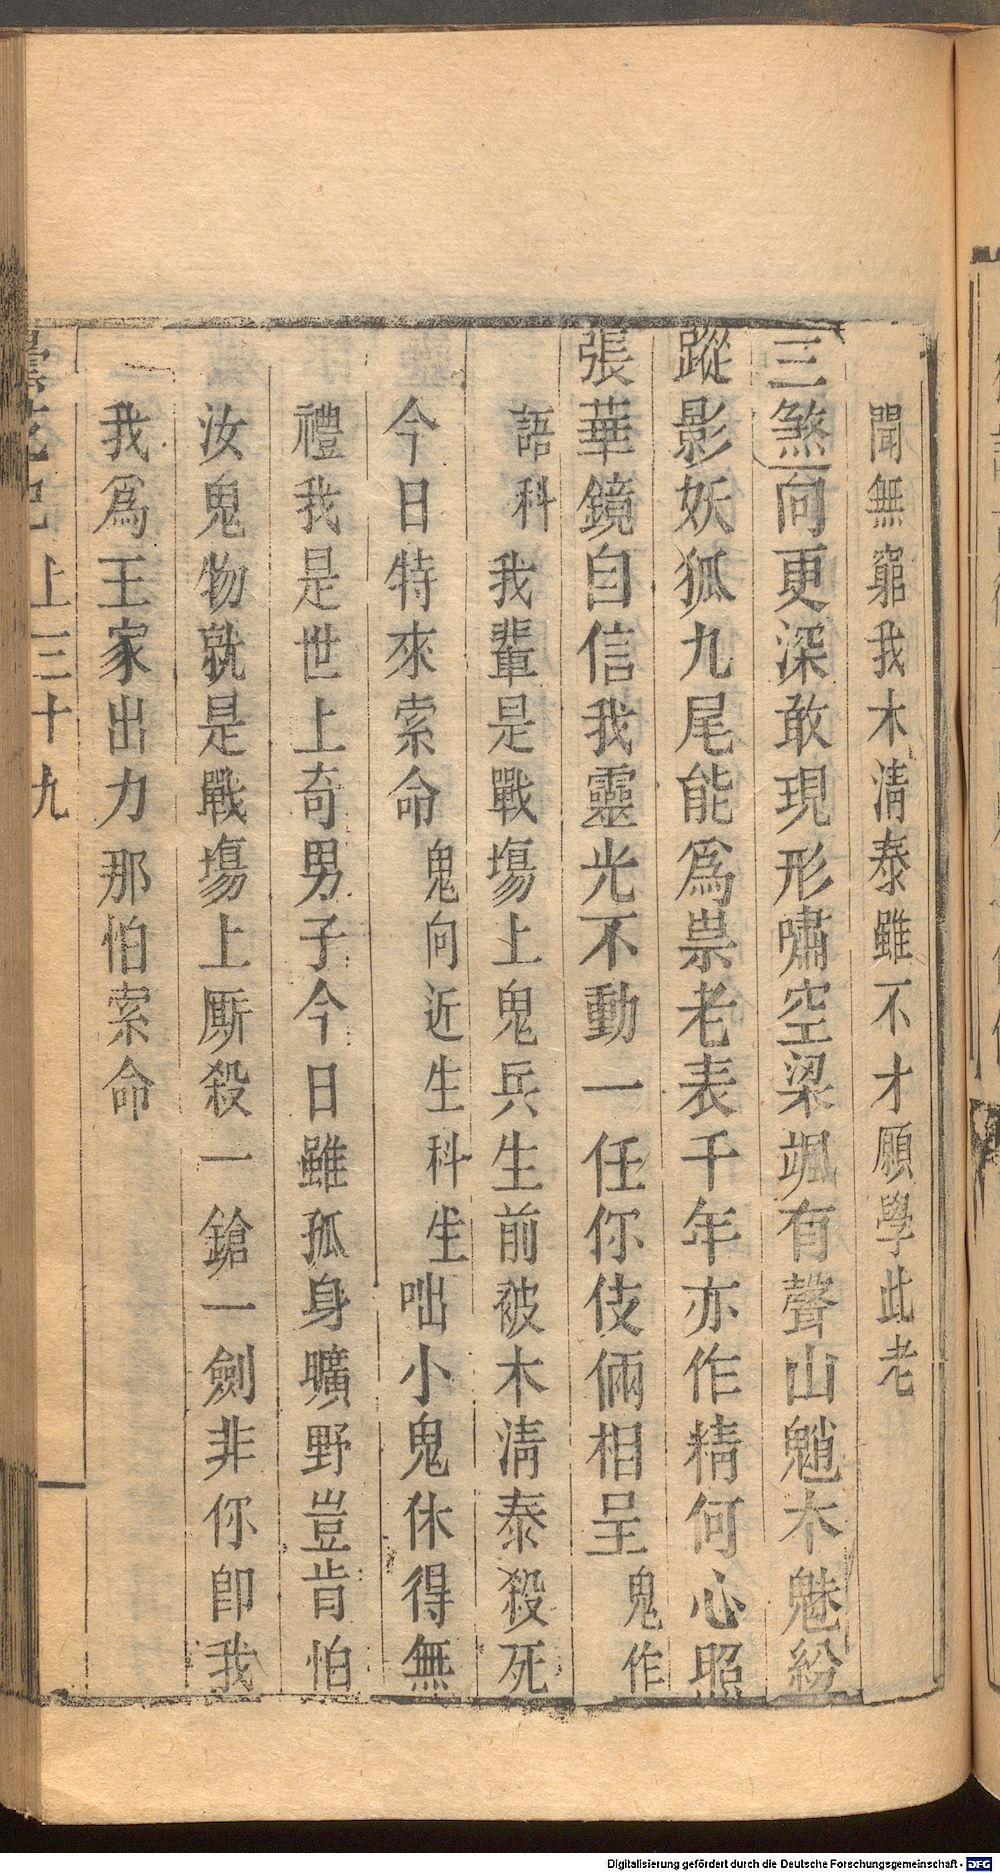 聞無窮我木清泰雖不才願學此老
三煞向更深敢現形嘯空梁颯有聲山魈木魅紛
蹤影妖狐九尾能爲祟老表千年亦作精何心照
張華鏡自信我靈光不動一任你伎倆相呈鬼作
語科我輩是戰場上鬼兵生前被木淸泰殺死
今日特來索命鬼向近生科生咄小鬼休得無
禮我是世上奇男子今日雖孤身曠野豈肯怕
汝鬼物就是戰塲上厮殺一鎗一劍非你卽我
我爲王家出力那怕索命
曇花記上三十九
Digitalisierung gefördert durch die Deutsche Forschungsgemeinschaft - DFG